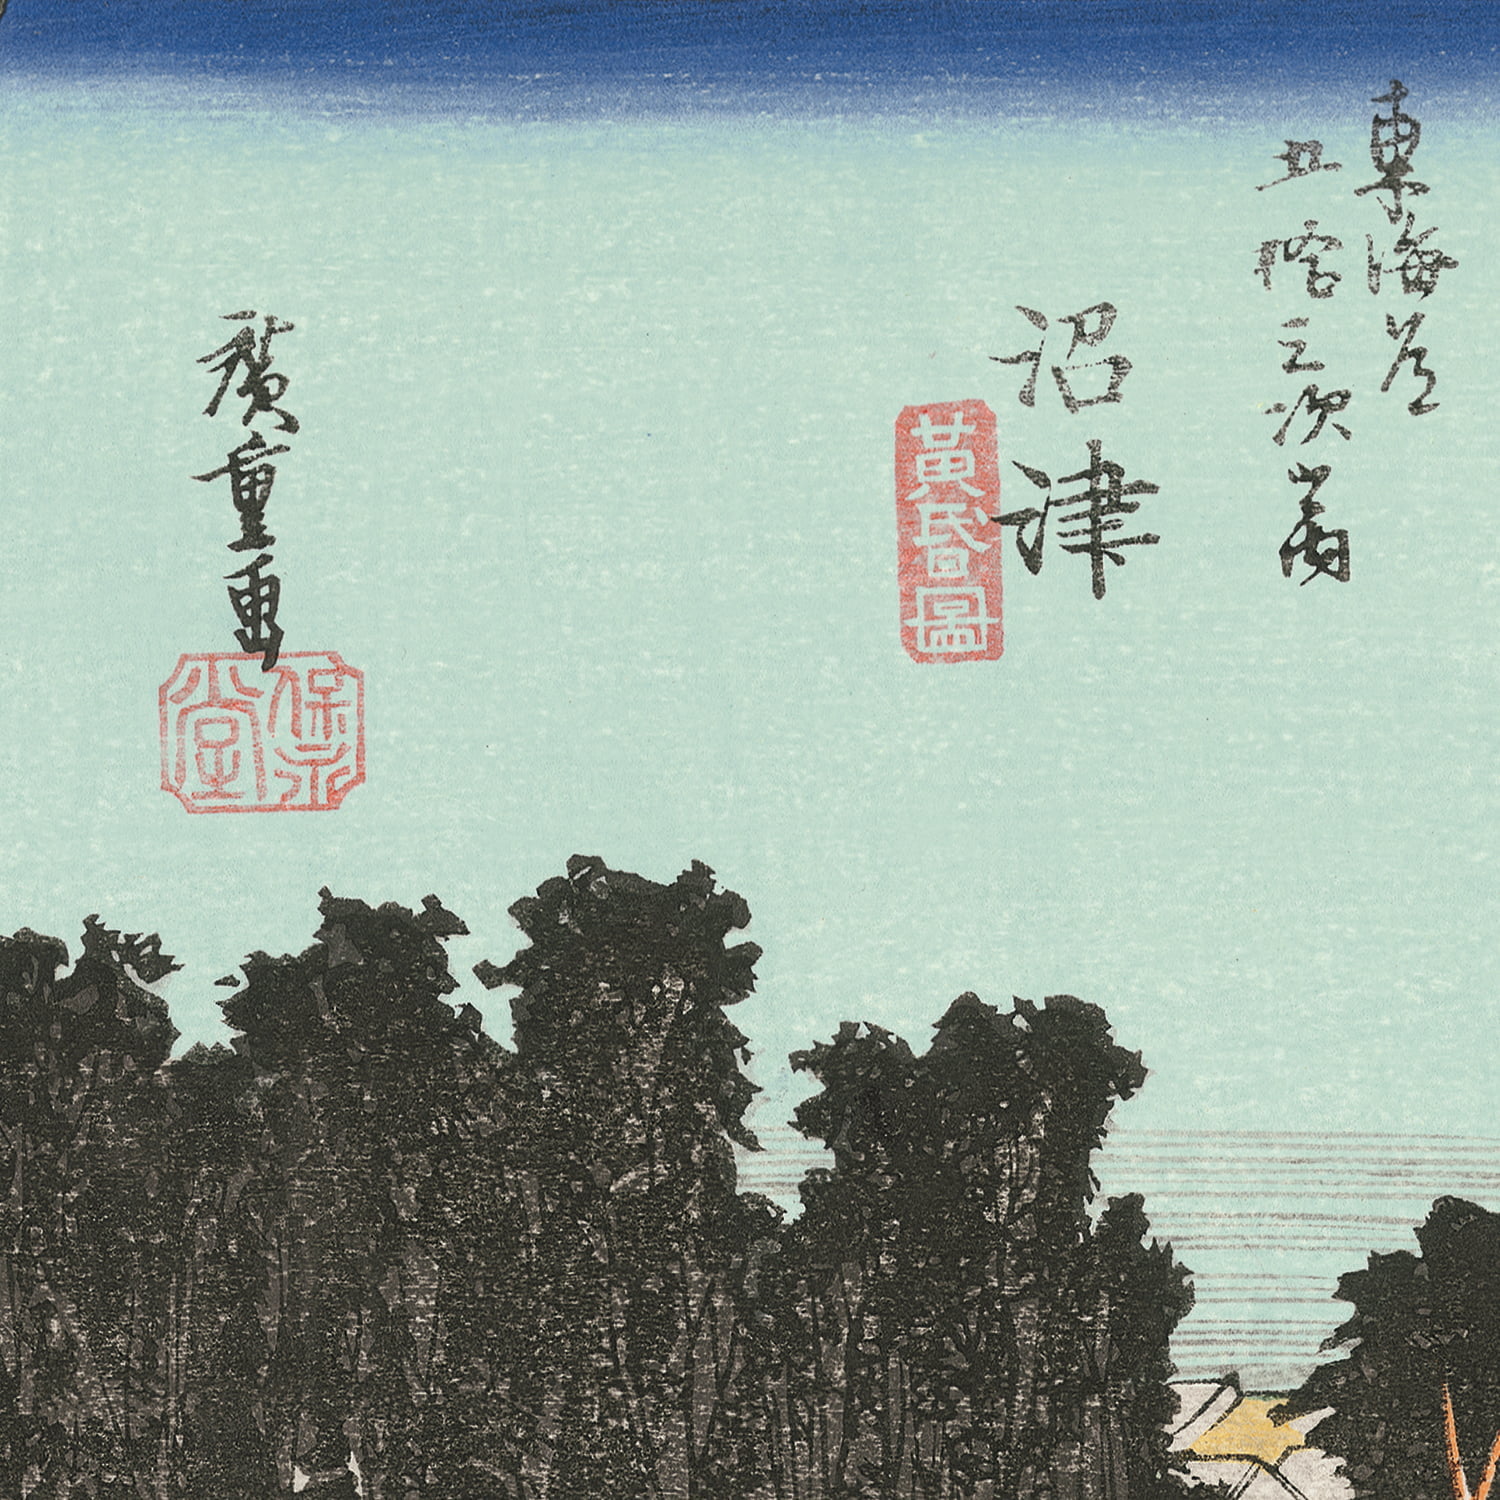 東海道
五拾三次之内
沼津
黃昏圖
廣重画
保永堂